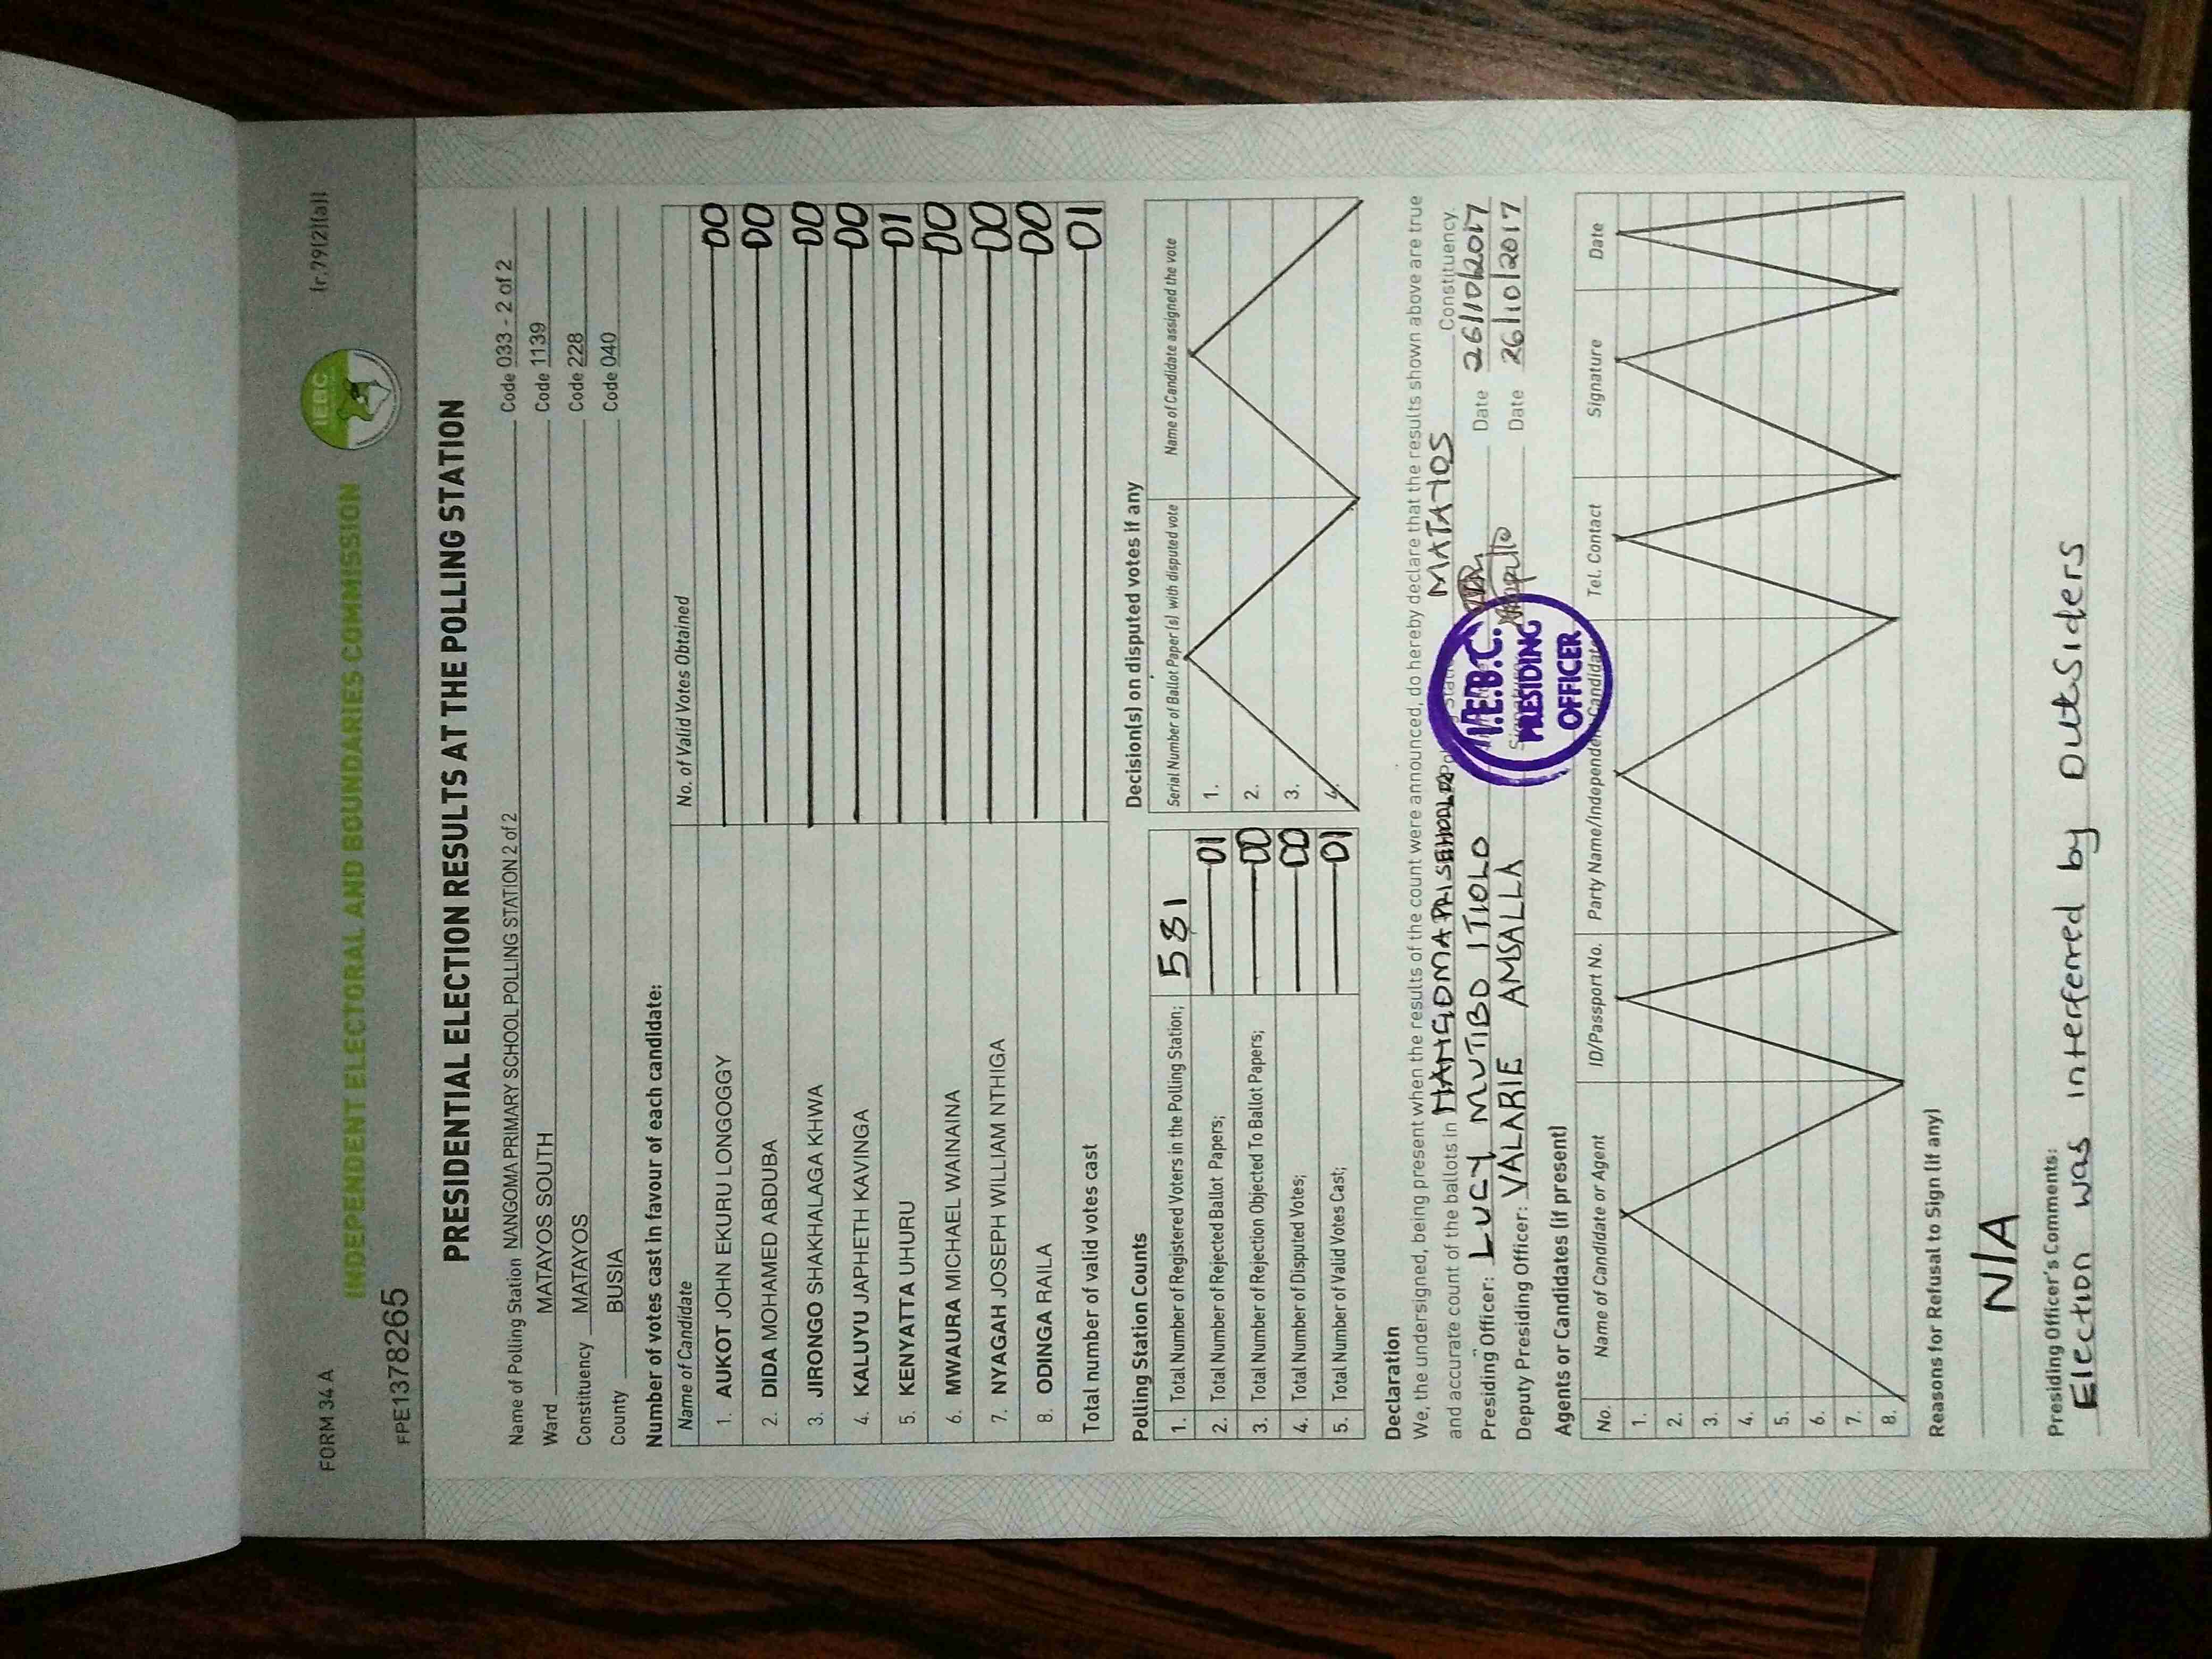 FORM 34 A
(r.79(2)(a))
IEBC
INDEPENDENT ELECTORAL AND BOUNDARIES COMMISSION
FPE1378265
PRESIDENTIAL ELECTION RESULTS AT THE POLLING STATION
Name of Polling Station NANGOMA PRIMARY SCHOOL POLLING STATION 2 of 2 Code 033 - 2 of 2
Ward MATAYOS SOUTH Code 1139
Constituency MATAYOS Code 228
County BUSIA Code 040
Number of votes cast in favour of each candidate:
Name of Candidate No. of Valid Votes Obtained
1. AUKOT JOHN EKURU LONGOGGY 00
2. DIDA MOHAMED ABDUBA 00
3. JIRONGO SHAKHALAGA KHWA 00
4. KALUYU JAPHETH KAVINGA 00
5. KENYATTA UHURU 01
6. MWAURA MICHAEL WAINAINA 00
7. NYAGAH JOSEPH WILLIAM NTHIGA 00
8. ODINGA RAILA 00
Total number of valid votes cast 01
Polling Station Counts
1. Total Number of Registered Voters in the Polling Station; 581
2. Total Number of Rejected Ballot Papers; 01
3. Total Number of Rejection Objected To Ballot Papers; 00
4. Total Number of Disputed Votes; 00
5. Total Number of Valid Votes Cast; 01
Decision(s) on disputed votes if any
Serial Number of Ballot Paper (s) with disputed vote Name of Candidate assigned the vote
1.
2.
3.
4.
Declaration
We, the undersigned, being present when the results of the count were announced, do hereby declare that the results shown above are true
and accurate count of the ballots in MATAYOS Constituency.
Presiding Officer: LUCY MUTIBO ITIOLO Date 26/10/2017
Deputy Presiding Officer: VALARIE AMSALLA Date 26/10/2017
I.E.B.C.
PRESIDING
OFFICER
Agents or Candidates (if present)
No. Name of Candidate or Agent ID/Passport No. Party Name/Independent Candidate Tel. Contact Signature Date
1.
2.
3.
4.
5.
6.
7.
8.
Reasons for Refusal to Sign (if any)
N/A
Presiding Officer's Comments:
Election was interferred by OutSiders